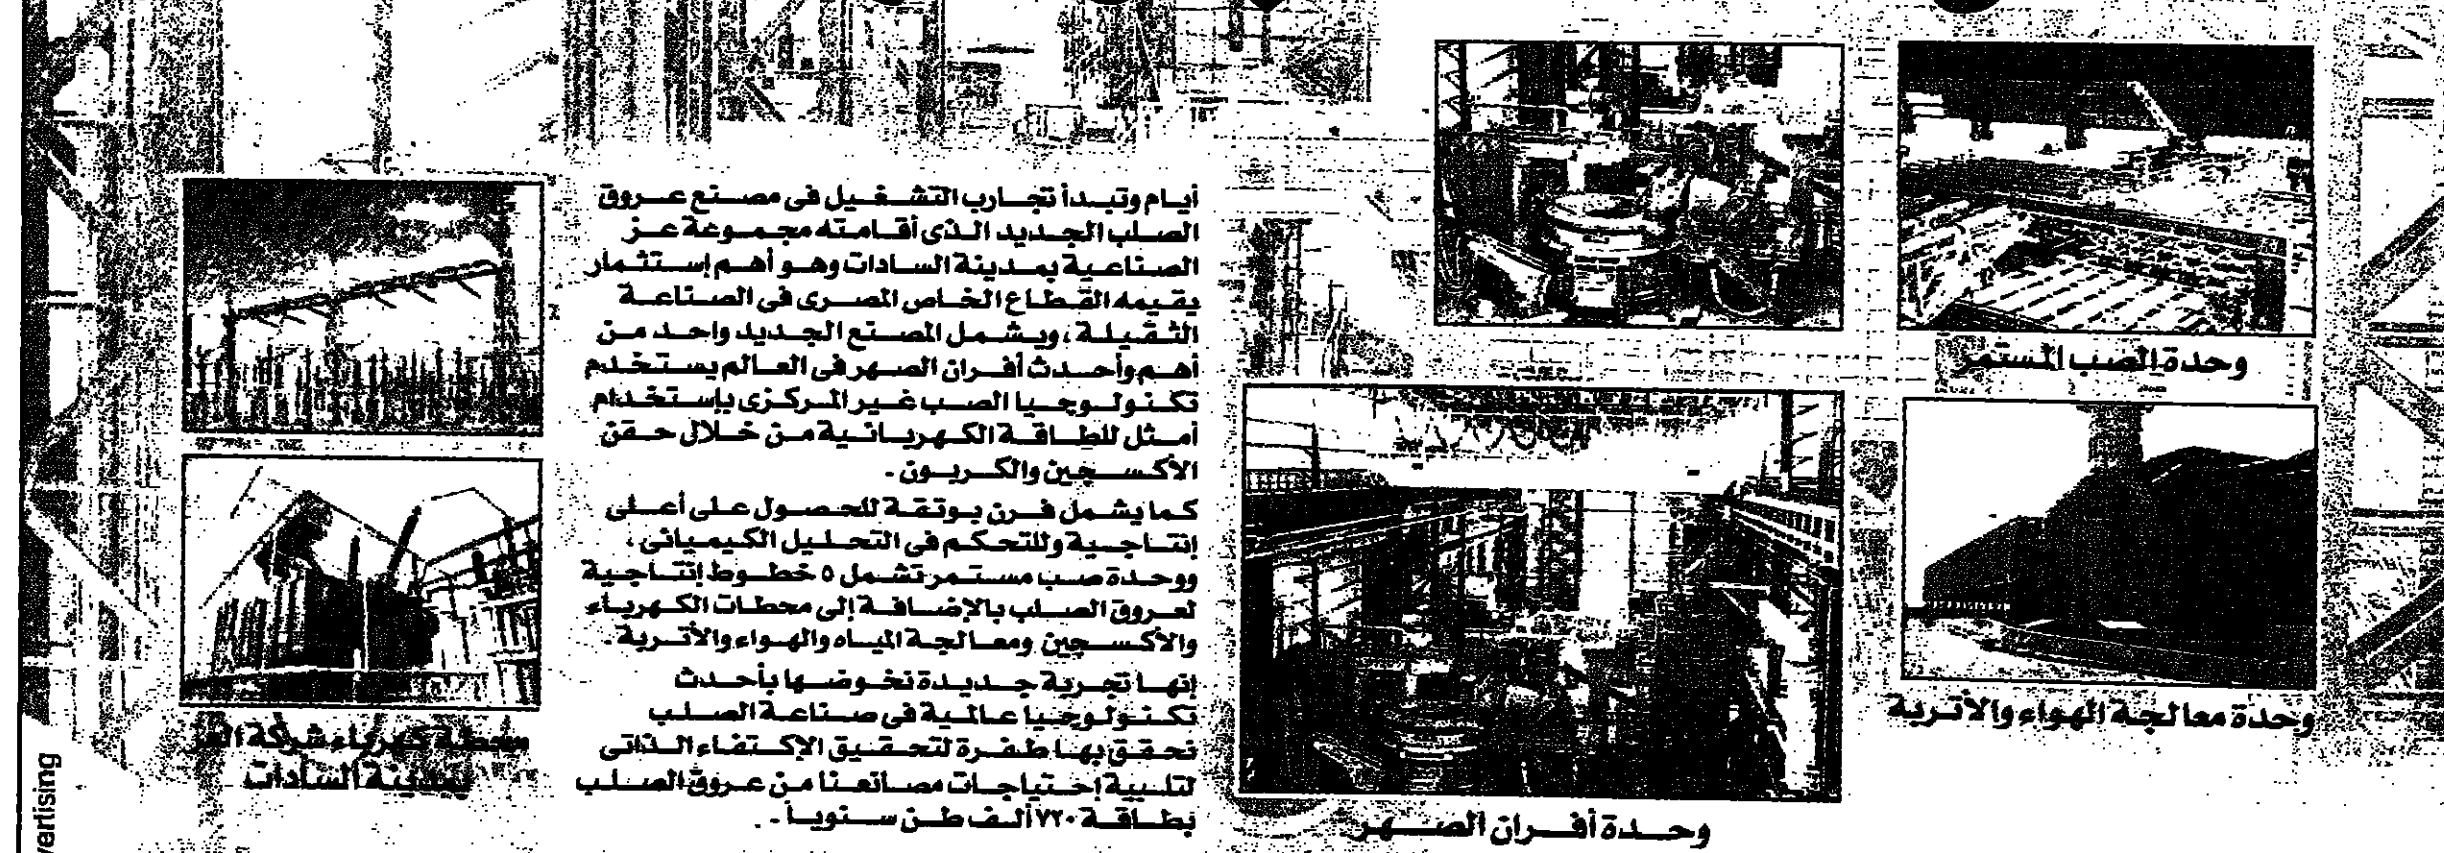 وحدة الصب المستمر
وحدة معالجة الهواء والأتربة
وحدة أفران الصهر
أيام وتبدأ تجارب التشغيل فى مصنع عروق
الصلب الجديد الذى أقامته مجموعة عز
الصناعية بمدينة السادات وهو أهم إستثمار
يقيمه القطاع الخاص المصرى فى الصناعة
الثقيلة ، ويشمل المصنع الجديد واحد من
أهم وأحدث أفران الصهر فى العالم يستخدم
تكنولوجيا الصب غير المركزى بإستخدام
أمثل للطاقة الكهربائية من خلال حقن
الأكسجين والكربون .
كما يشمل فرن بوتقة للحصول على أعلى
إنتاجية وللتحكم فى التحليل الكيميائى ،
ووحدة صب مستمر تشمل ٥ خطوط إنتاجية
لعروق الصلب بالإضافة إلى محطات الكهرباء
والأكسجين ومعالجة المياه والهواء والأتربة .
إنها تجربة جديدة نخوضها بأحدث
تكنولوجيا عالمية فى صناعة الصلب
نحقق بها طفرة لتحقيق الإكتفاء الذاتى
لتلبية إحتياجات مصانعنا من عروق الصلب
بطاقة ٧٢٠ ألف طن سنوياً .
محطة كهرباء شركة العز
بمدينة السادات
vertising